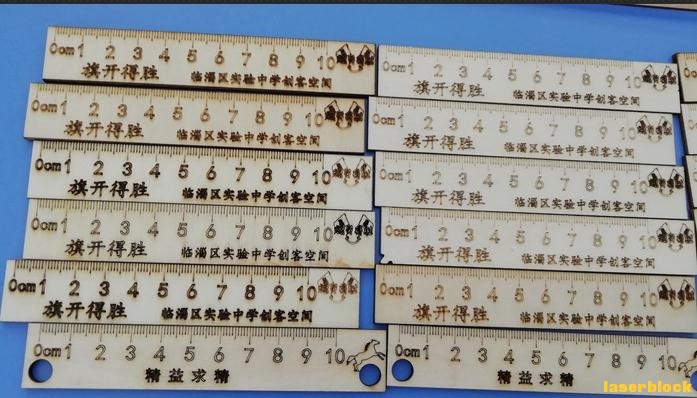 0cm 1 2 3 4 5 6 7 8 9 10
旗开得胜 临淄区实验中学创客空间
0cm 1 2 3 4 5 6 7 8 9 10
旗开得胜 临淄区实验中学创客空间
0cm 1 2 3 4 5 6 7 8 9 10
旗开得胜 临淄区实验中学创客空间
0cm 1 2 3 4 5 6 7 8 9 10
旗开得胜 临淄区实验中学创客空间
0cm 1 2 3 4 5 6 7 8 9 10
旗开得胜 临淄区实验中学创客空间
0cm 1 2 3 4 5 6 7 8 9 10
精益求精
0cm 1 2 3 4 5 6 7 8 9 10
旗开得胜 临淄区实验中学创客空间
0cm 1 2 3 4 5 6 7 8 9 10
旗开得胜 临淄区实验中学创客空间
0cm 1 2 3 4 5 6 7 8 9 10
旗开得胜 临淄区实验中学创客空间
0cm 1 2 3 4 5 6 7 8 9 10
旗开得胜 临淄区实验中学创客空间
0cm 1 2 3 4 5 6 7 8 9 10
旗开得胜 临淄区实验中学创客空间
0cm 1 2 3 4 5 6 7 8 9 10
精益求精
laserblock